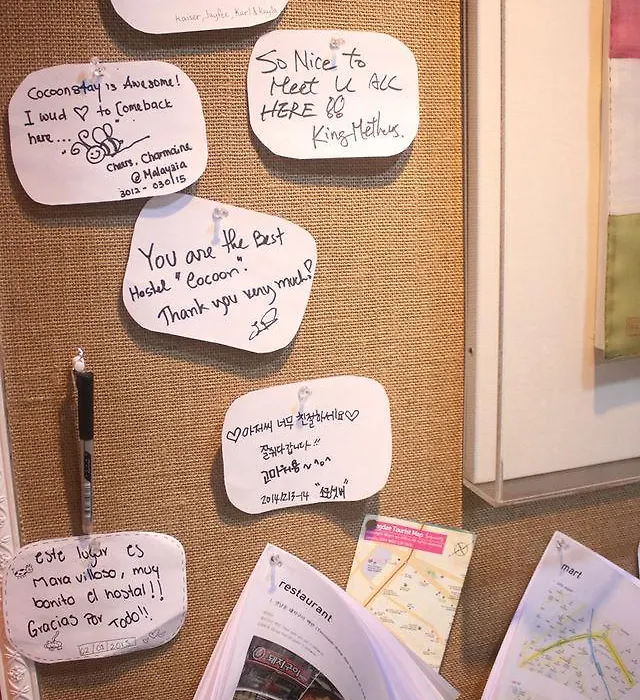 Kaiser, Jaytee, Karl & Kayla
Cocoonstay is Awesome!
I wud ♡ to Comeback
here...
Cheers, Charmaine
@Malaysia
3012 - 030115
So Nice to
Meet U ALL
HERE
King Metheus.
You are the Best
Hostel "Cocoon".
Thank you very much!
♡아저씨 너무 친절하세요♡
잘쉬다갑니다!!
고마워용~^o^
2014/12/13-14
este lugar es
Maravilloso, muy
bonito el hostal!!
Gracias Por todo!!
02/03/2015
Tourist Map
restaurant
돼지구이
mart